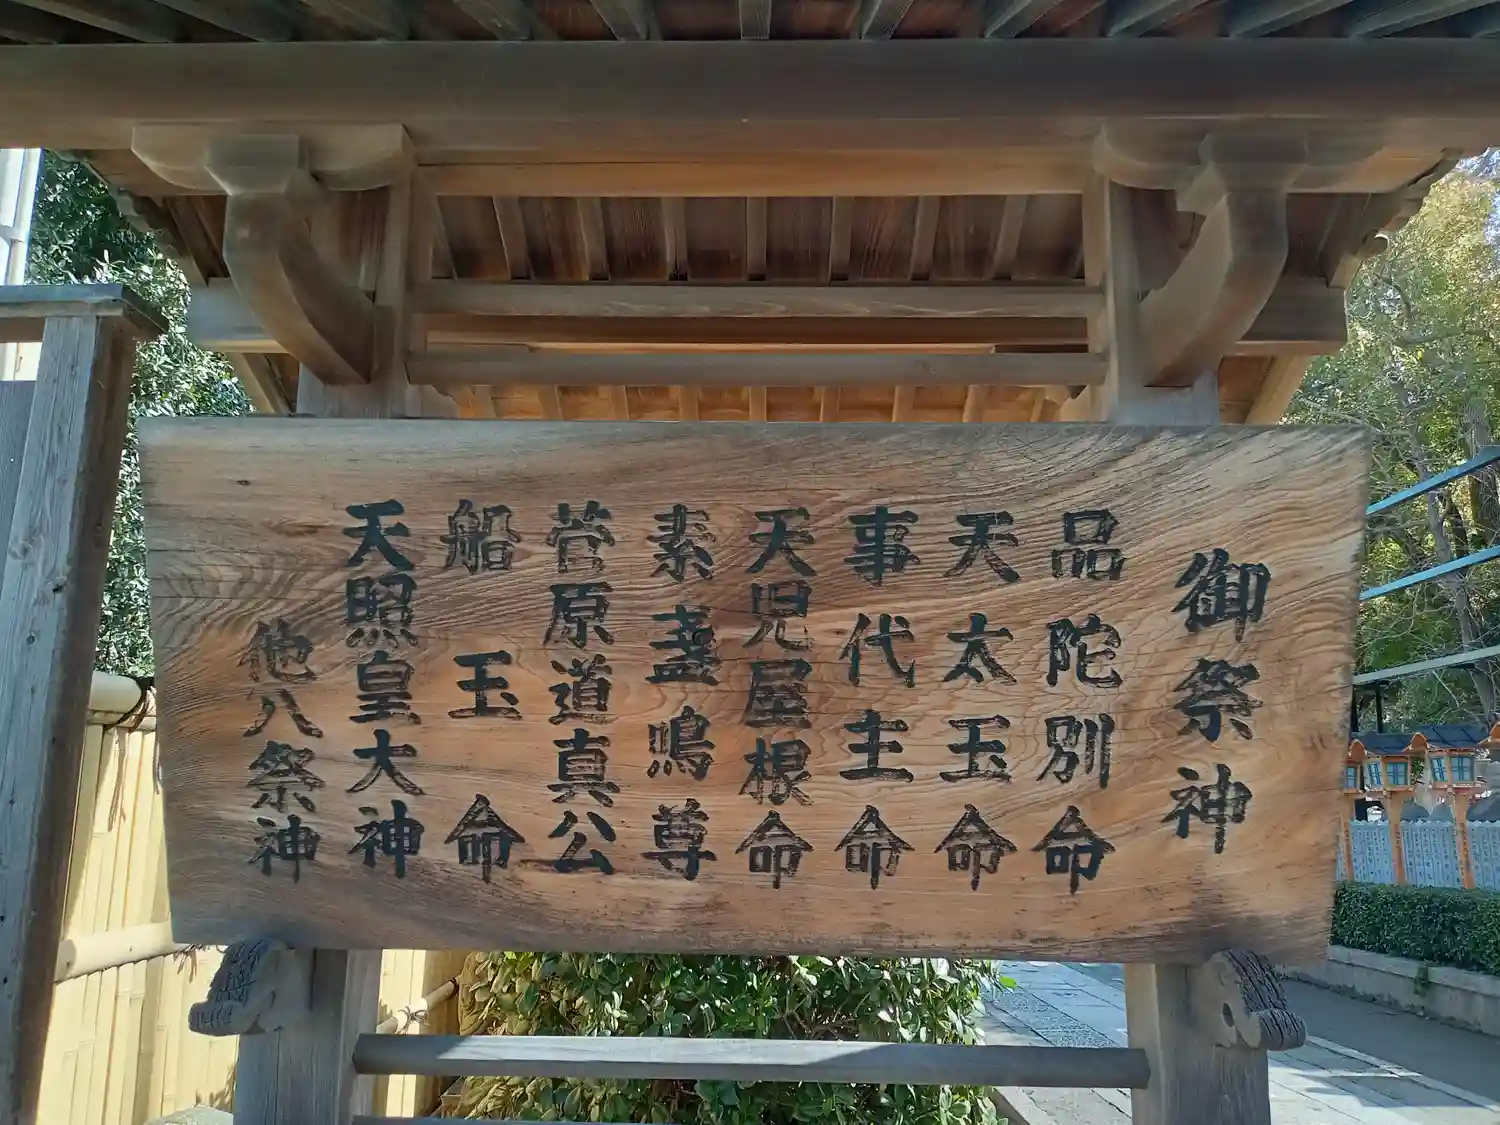 御祭神
品陀別命
天太玉命
事代主命
天児屋根命
素盞鳴尊
菅原道真公
船玉命
天照皇大神
他八祭神